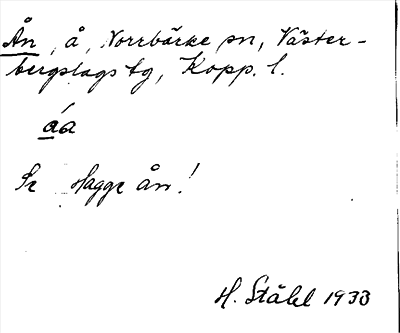 Ån, å, Norrbärke sn, Väster-
bergslags tg, Kopp. l.
a̲´a
Se Hagge ån!
H. Ståhl 1933